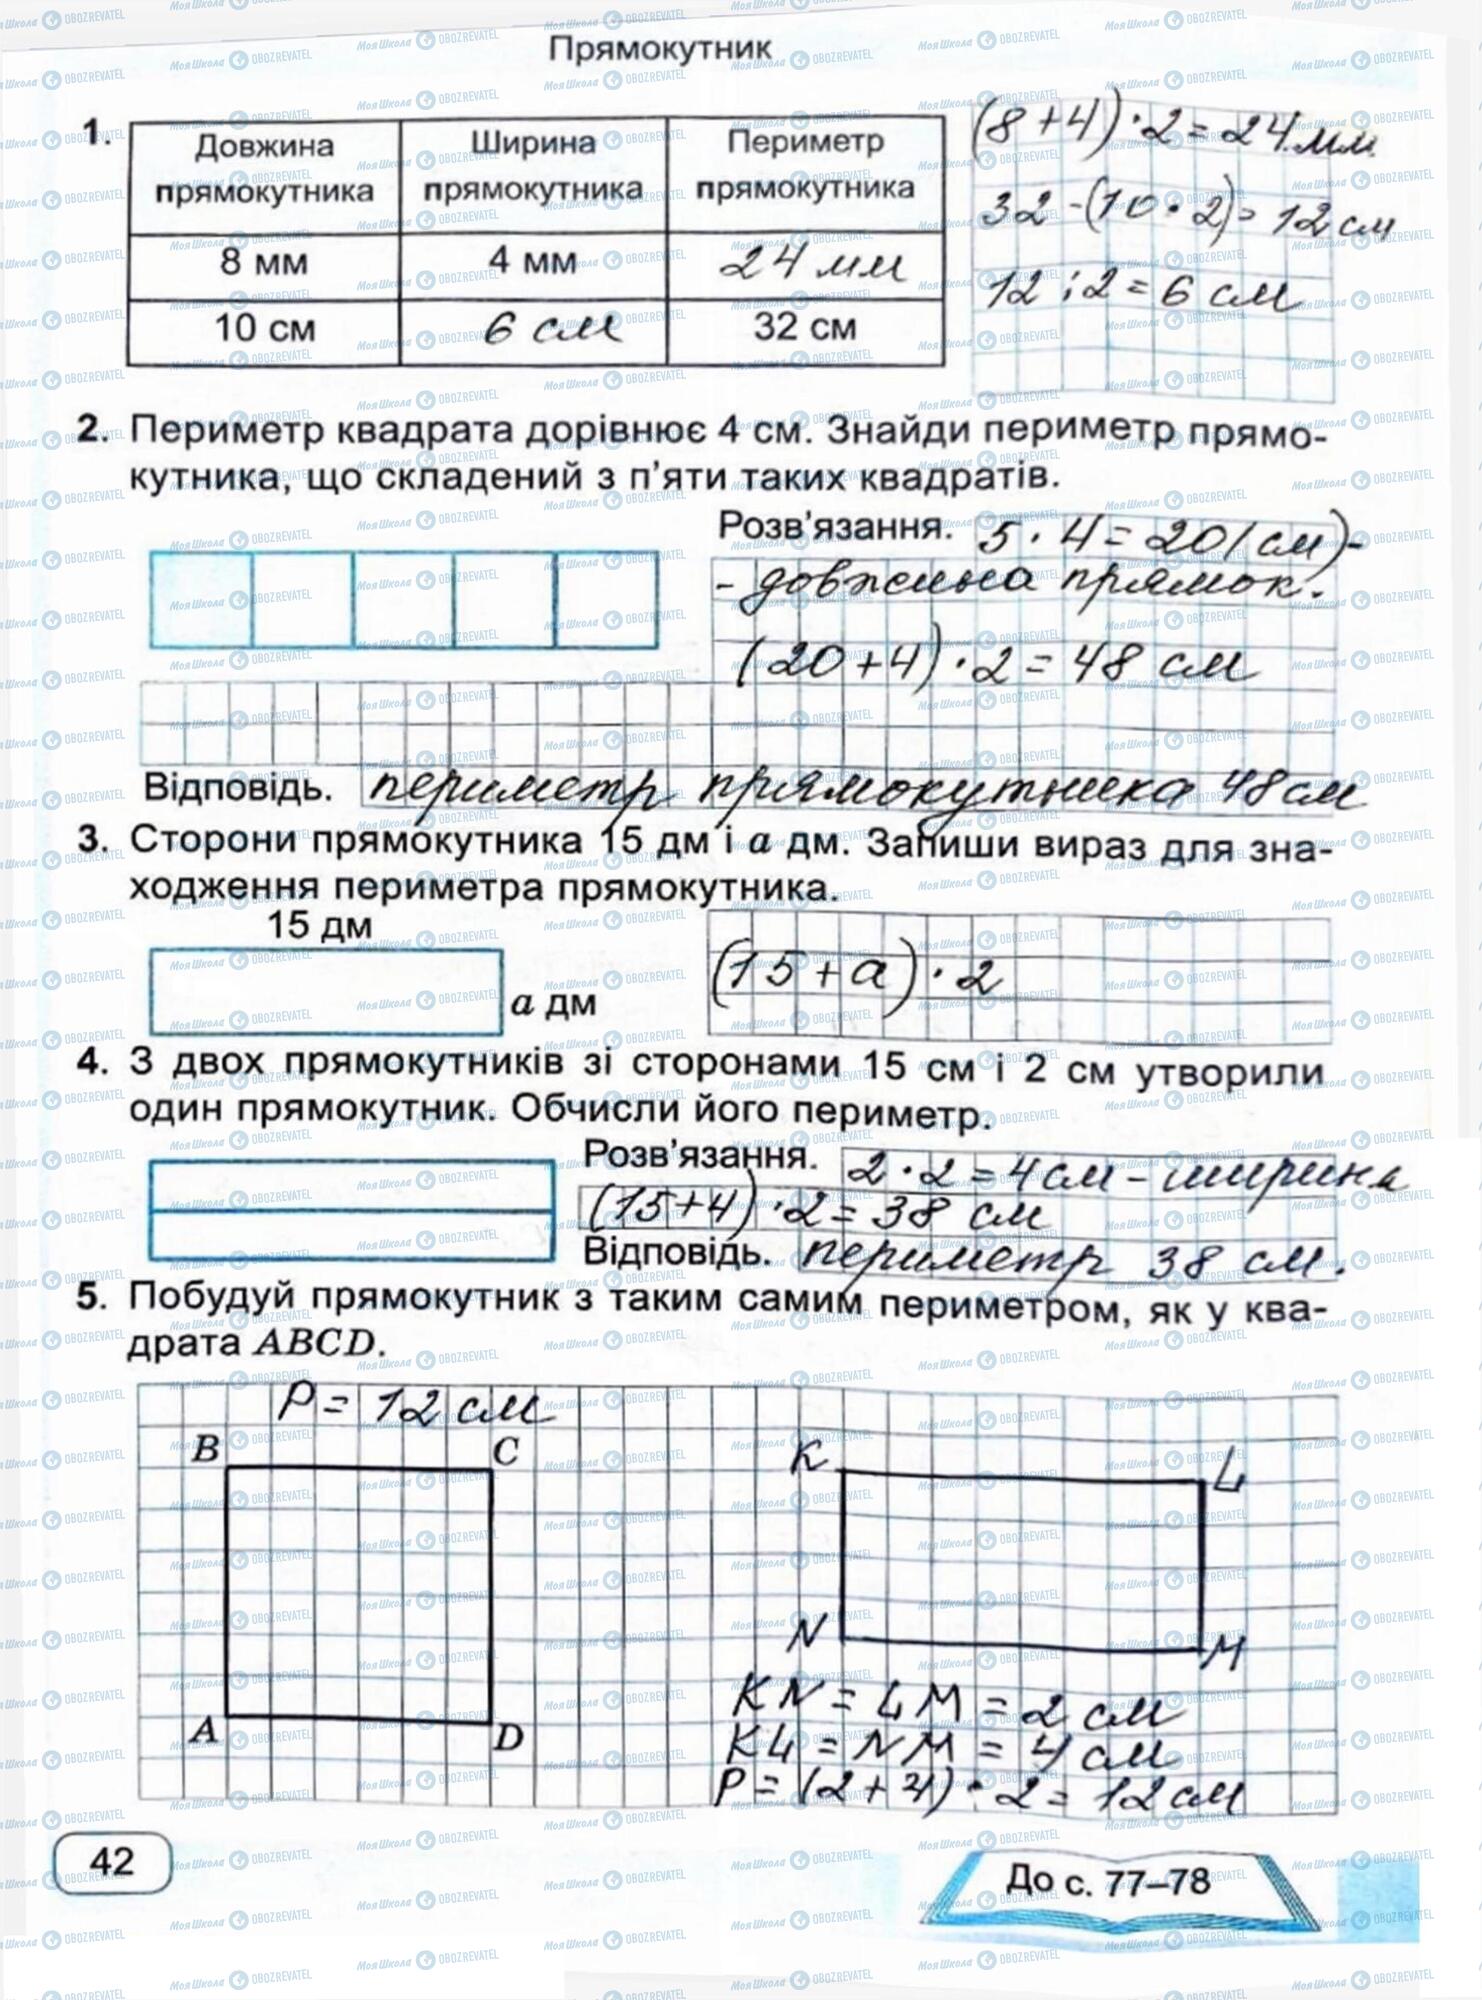 Прямокутник
1.
Довжина прямокутника
Ширина прямокутника
Периметр прямокутника
8 мм
4 мм
24 мм
10 см
6 см
32 см
(8+4)·2=24 мм
32-(10·2)=12 см
12:2=6 см
2. Периметр квадрата дорівнює 4 см. Знайди периметр прямо-
кутника, що складений з п'яти таких квадратів.
Розв'язання. 5·4=20(см)-
- довжина прямок.
(20+4)·2=48 см
Відповідь. периметр прямокутника 48 см
3. Сторони прямокутника 15 дм і a дм. Запиши вираз для зна-
ходження периметра прямокутника.
15 дм
a дм
(15+a)·2
4. З двох прямокутників зі сторонами 15 см і 2 см утворили
один прямокутник. Обчисли його периметр.
Розв'язання. 2·2=4см-ширина
(15+4)·2=38 см
Відповідь. периметр 38 см.
5. Побудуй прямокутник з таким самим периметром, як у ква-
драта ABCD.
P=12 см
B
C
K
L
A
D
N
M
KN=LM=2 см
KL=NM=4 см
P=(2+4)·2=12 см
42
До с. 77–78
МояШкола OBOZREVATEL